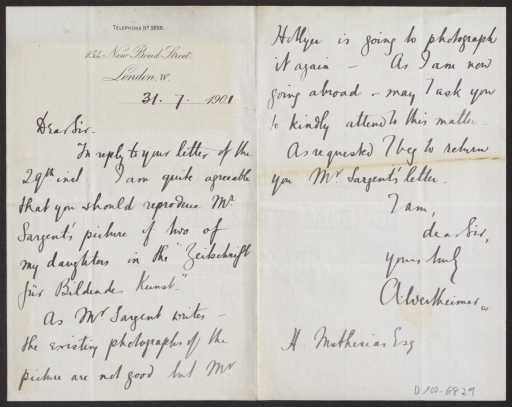 TELEPHONE Nº
New Bond Street.
London, W.
31. 7. 1901
Dear Sir.
In reply to your letter of the
29th inst I am quite agreeable
that you should reproduce Mr
Sargent's picture of two of
my daughters in the "Zeitschrift
für Bildende Kunst."
As Mr Sargent writes –
the existing photographs of the
picture are not good but Mr
Hollyer is going to photograph
it again – As I am now
going abroad – may I ask you
to kindly attend to this matter.
As requested I beg to return
you Mr Sargent's letter.
I am,
dear Sir,
yours truly
A Wertheimer
H Muthesius Esq